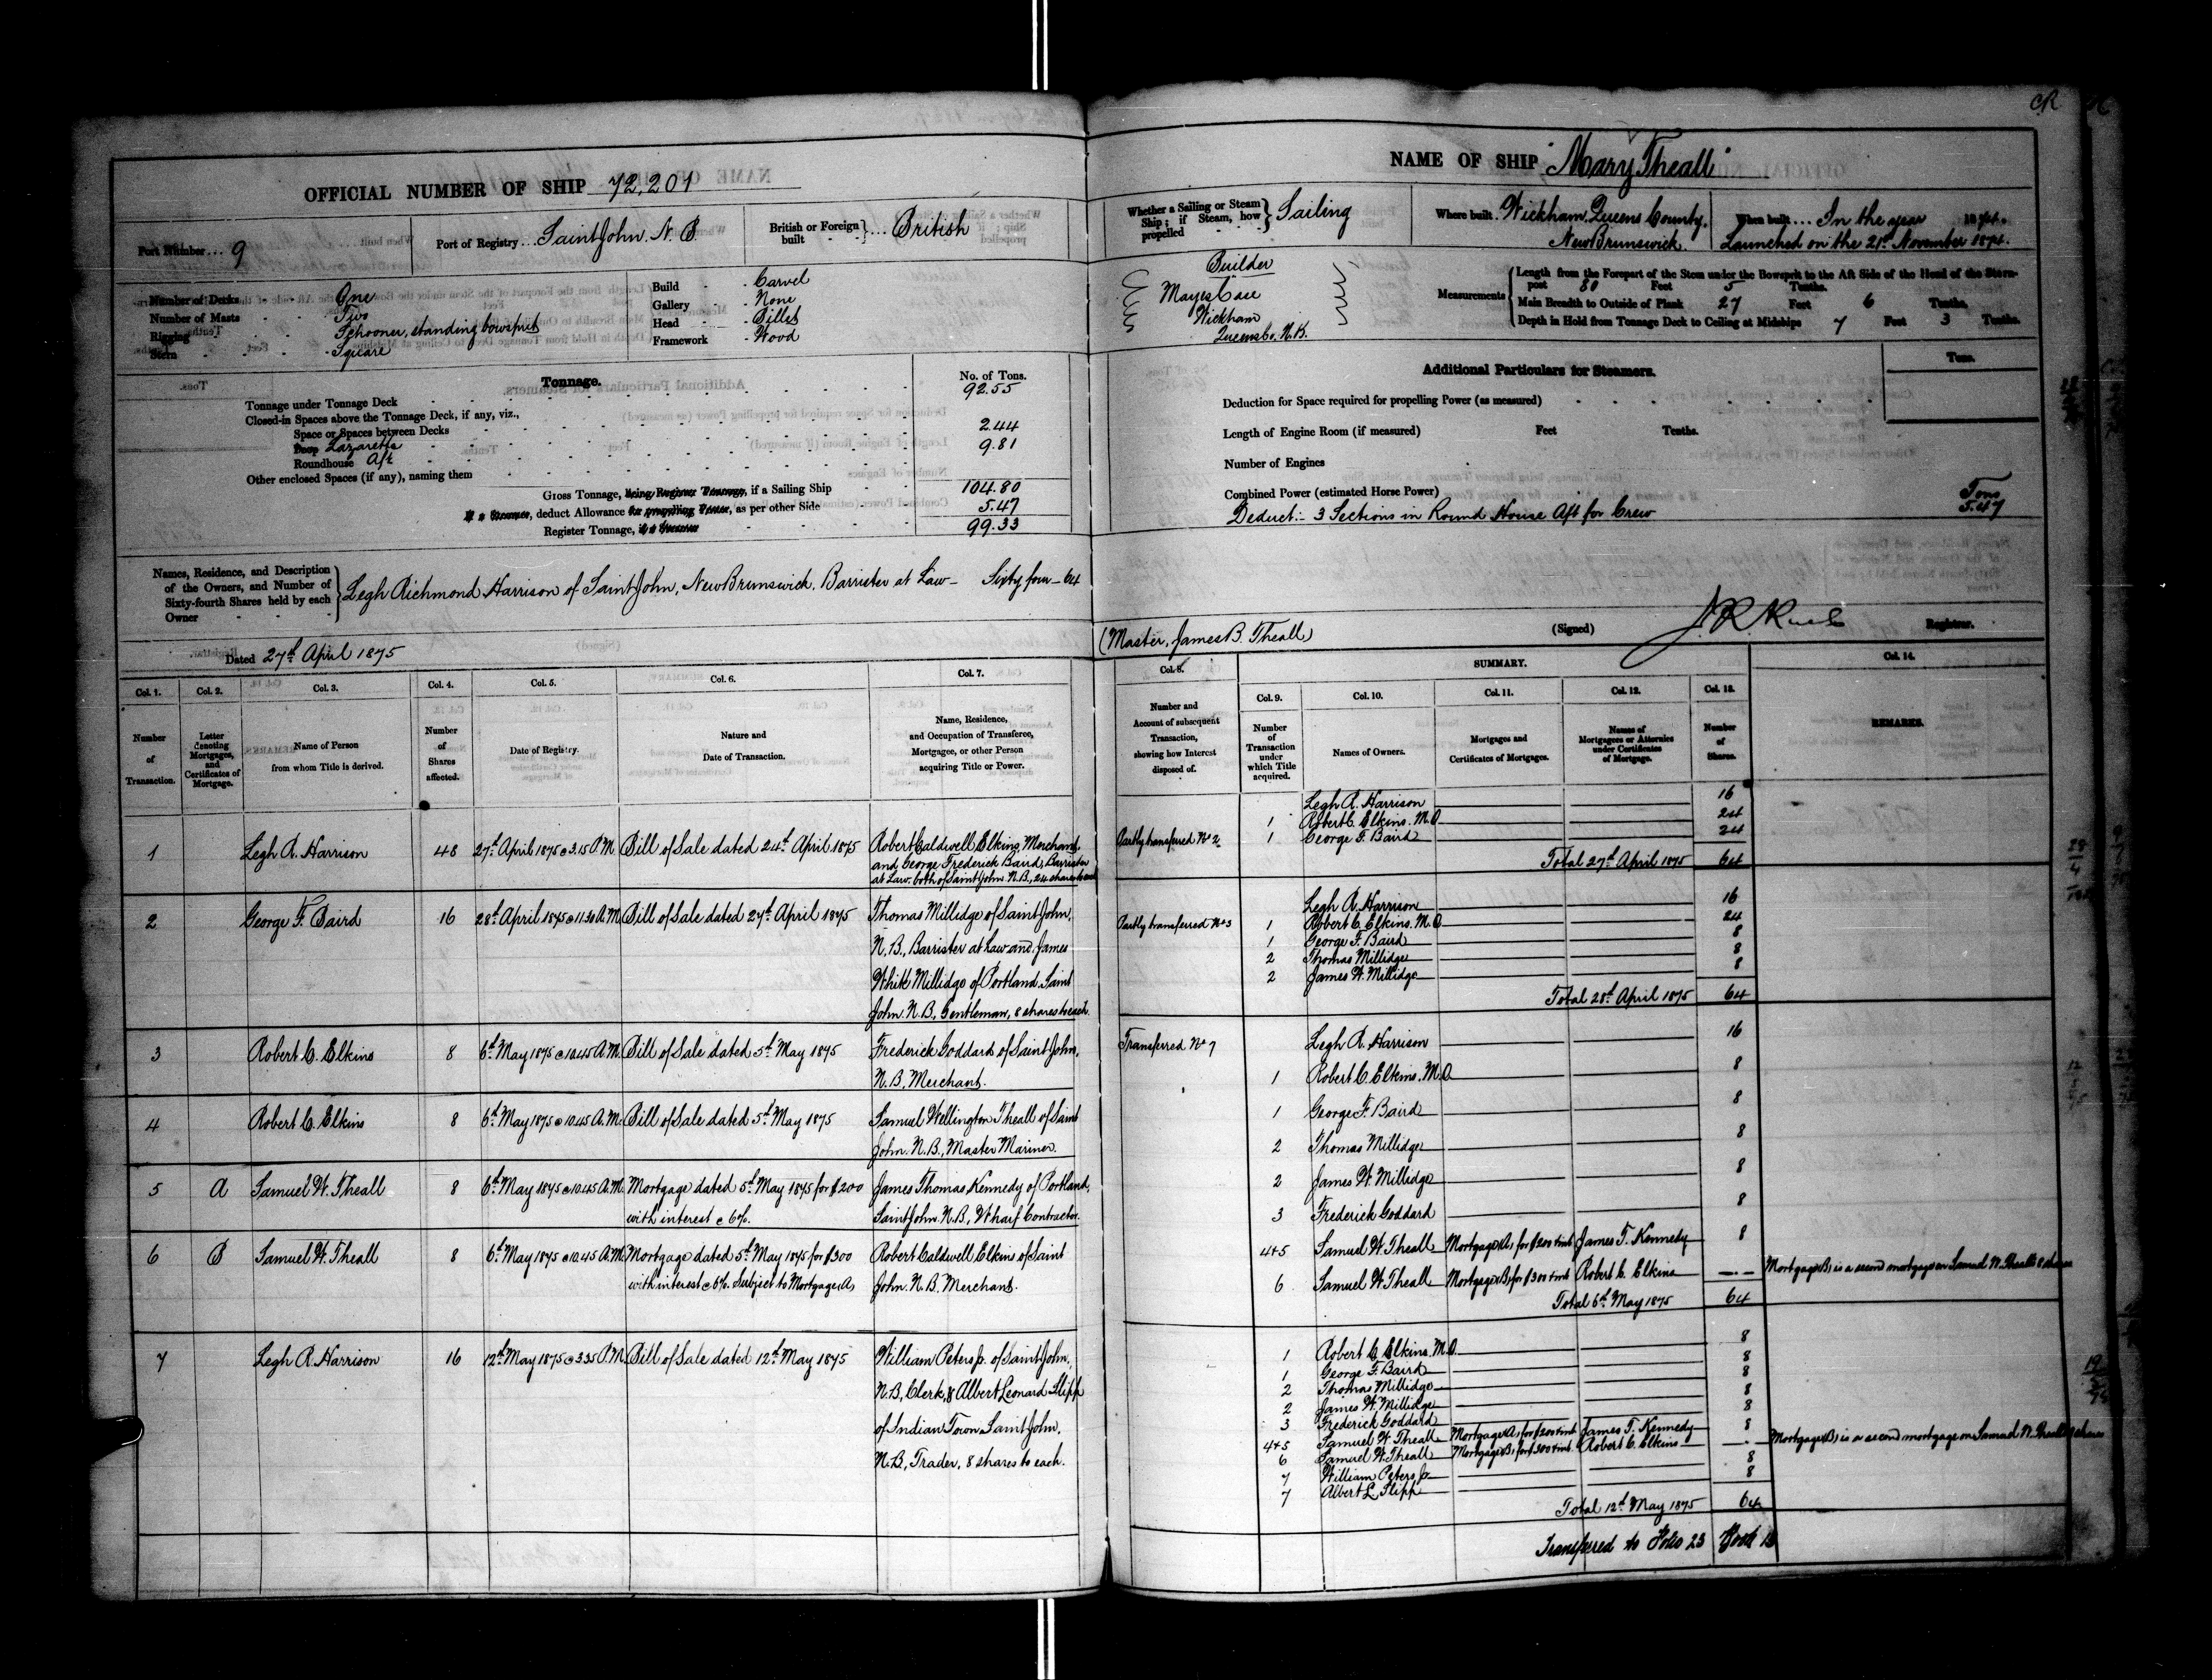 CR
OFFICIAL NUMBER OF SHIP 72,201
Port Number ... 9
Port of Registry ... Saint John N. B.
British or Foreign built } ... British
Number of Decks - - One
Number of Masts - - Two
Rigging - - Schooner, standing bowsprit
Stern - - Square
Build - - Carvel
Gallery - - None
Head - - Billet
Framework - Wood
Tonnage.
No. of Tons.
Tonnage under Tonnage Deck 92.55
Closed-in Spaces above the Tonnage Deck, if any, viz.,
Space or Spaces between Decks
Poop Lazarette 2.44
Roundhouse Aft 9.81
Other enclosed Spaces (if any), naming them
Gross Tonnage, being Register Tonnage, if a Sailing Ship 104.80
If a Steamer, deduct Allowance for propelling Power, as per other Side 5.47
Register Tonnage, if a Steamer 99.33
Names, Residence, and Description of the Owners, and Number of Sixty-fourth Shares held by each Owner } Legh Richmond Harrison of Saint John, New Brunswick, Barrister at Law — Sixty four — 64
Dated 27th April 1875
NAME OF SHIP "Mary Theall"
Whether a Sailing or Steam Ship; if Steam, how propelled } Sailing
Where built. Wickham, Queens County, New Brunswick
When built ... In the year 1874.
Launched on the 21st November 1874.
Builder
Mayes Case
Wickham
Queens Co. N.B.
Measurements
Length from the Forepart of the Stem under the Bowsprit to the Aft Side of the Head of the Stern-
post 80 Feet 5 Tenths.
Main Breadth to Outside of Plank 27 Feet 6 Tenths.
Depth in Hold from Tonnage Deck to Ceiling at Midships 7 Feet 3 Tenths.
Additional Particulars for Steamers.
Tons.
Deduction for Space required for propelling Power (as measured)
Length of Engine Room (if measured) Feet Tenths.
Number of Engines
Combined Power (estimated Horse Power)
Tons
Deduct:- 3 Sections in Round House Aft for Crew 5.47
(Master, James B. Theall)
(Signed) Registrar.
Col. 1. Number of Transaction.
Col. 2. Letter denoting Mortgages, and Certificates of Mortgage.
Col. 3. Name of Person from whom Title is derived.
Col. 4. Number of Shares affected.
Col. 5. Date of Registry.
Col. 6. Nature and Date of Transaction.
Col. 7. Name, Residence, and Occupation of Transferee, Mortgagee, or other Person acquiring Title or Power.
1 Legh R. Harrison 48 27th April 1875 @ 3.15 P.M. Bill of Sale dated 24th April 1875 Robert Caldwell Elkins, Merchant,
and George Frederick Baird, Barrister
at Law. both of Saint John N.B., 24 shares to each
2 George F. Baird 16 28th April 1875 @ 11.30 A.M. Bill of Sale dated 27th April 1875 Thomas Millidge of Saint John,
N.B., Barrister at Law and James
White Millidge of Portland, Saint
John. N.B., Gentleman, 8 shares to each.
3 Robert C. Elkins 8 6th May 1875 @ 10.45 A.M. Bill of Sale dated 5th May 1875 Frederick Goddard of Saint John,
N.B., Merchant.
4 Robert C. Elkins 8 6th May 1875 @ 10.45 A.M. Bill of Sale dated 5th May 1875 Samuel Wellington Theall of Saint
John. N.B., Master Mariner.
5 A Samuel W. Theall 8 6th May 1875 @ 10.45 A.M. Mortgage dated 5th May 1875 for $200 James Thomas Kennedy of Portland,
with interest @ 6%. Saint John. N.B., Wharf Contractor.
6 B Samuel W. Theall 8 6th May 1875 @ 10.45 A.M. Mortgage dated 5th May 1875 for $300 Robert Caldwell Elkins of Saint
with interest @ 6%. Subject to Mortgage (A) John. N.B. Merchant.
7 Legh R. Harrison 16 12th May 1875 @ 3.35 P.M. Bill of Sale dated 12th May 1875 William Peters Jr. of Saint John,
N.B., Clerk, & Albert Leonard Flipp
of Indian Town Saint John,
N.B., Trader, 8 shares to each.
SUMMARY.
Col. 8. Number and Account of subsequent Transaction, showing how Interest disposed of.
Col. 9. Number of Transaction under which Title acquired.
Col. 10. Names of Owners.
Col. 11. Mortgages and Certificates of Mortgages.
Col. 12. Names of Mortgagees or Attornies under Certificates of Mortgage.
Col. 13. Number of Shares.
Col. 14. REMARKS.
Legh R. Harrison 16
1 Robert C. Elkins. M.O. 24
Partly transferred No 2 1 George F. Baird 24
Total 27th April 1875 64
Legh R. Harrison 16
Partly transferred No 3 1 Robert C. Elkins. M.O. 24
1 George F. Baird 8
2 Thomas Millidge 8
2 James W. Millidge 8
Total 28th April 1875 64
Transferred No 7 Legh R. Harrison 16
1 Robert C. Elkins. M.O. 8
1 George F. Baird 8
2 Thomas Millidge 8
2 James W. Millidge 8
3 Frederick Goddard 8
4+5 Samuel W. Theall Mortgage (A) for $200 + int James T. Kennedy 8
6 Samuel W. Theall Mortgage (B) for $300 + int Robert C. Elkins Mortgage (B) is a second mortgage on Samuel W. Theall's 8 shares
Total 6th May 1875 64
1 Robert C. Elkins. M.O. 8
1 George F. Baird 8
2 Thomas Millidge 8
2 James W. Millidge 8
3 Frederick Goddard 8
4+5 Samuel W. Theall Mortgage (A) for $200 + int James T. Kennedy 8
6 Samuel W. Theall Mortgage (B) for $300 + int Robert C. Elkins Mortgage (B) is a second mortgage on Samuel W. Theall's 8 shares
7 William Peters Jr 8
7 Albert L. Flipp 8
Total 12th May 1875 64
Transferred to Folio 23 Book